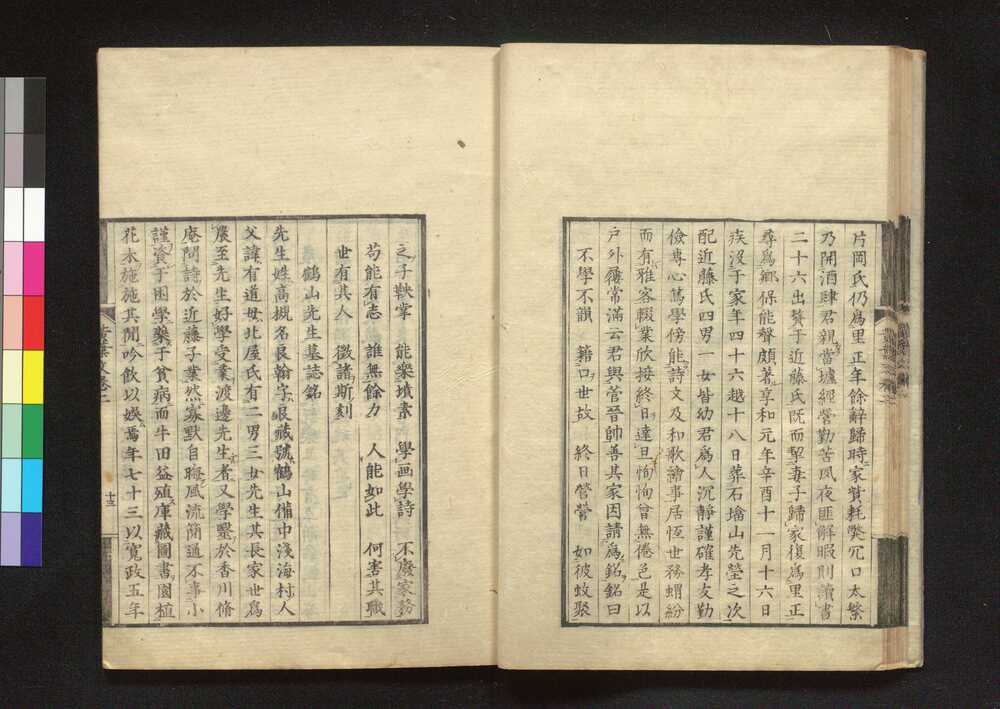 片岡氏仍爲里正年餘辭歸時家貲耗斁冗口太繁
乃開酒肆君親當壚經營勤苦夙夜匪懈暇則讀書
二十六出贅于近藤氏既而挈妻子歸家復爲里正
尋爲鄉保能聲頗著享和元年辛酉十一月十六日
疾沒于家年四十六越十八日葬石墖山先塋之次
配近藤氏四男一女皆幼君爲人沉靜謹確孝友勤
儉專心篤學傍能詩文及和歌繪事居恆世務蝟紛
而有雅客輟業欣接終日達旦恂恂曾無倦色是以
戶外屨常滿云君與菅晉帥善其家因請爲銘銘曰
不學不韻 籍口世故 終日營營 如彼蚊聚
之子鞅掌 能樂墳素 學画學詩 不廢家務
苟能有志 誰無餘力 人能如此 何害其職
世有其人 徵諸斯刻
鶴山先生墓誌銘
先生姓高槻名長翰字 藏號鶴山備中淺海村人
父諱有道母北屋氏有二男三女先生其長家世爲
農至先生好學受業渡邊先生者又學醫於香川脩
庵問詩於近藤子業然寡默自晦風流簡通不事小
謹資于困學樂于貧病而牛田益殖庫藏圖書園植
花木施施其間吟飲以娛焉年七十三以寬政五年
十三